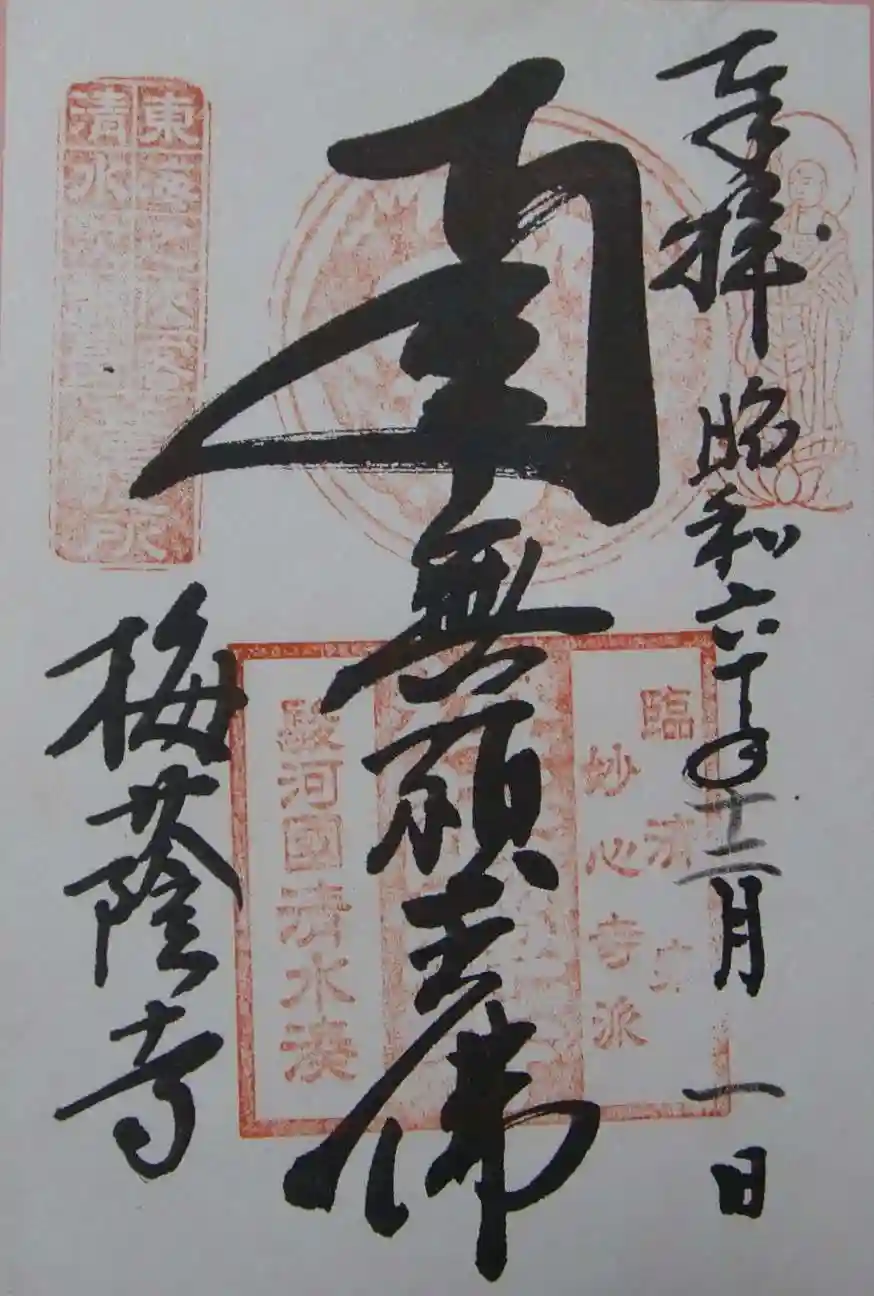 奉拝 昭和六十年十二月一日
南無願王佛
梅蔭寺
臨済宗
妙心寺派
駿河國清水湊
東海
清水